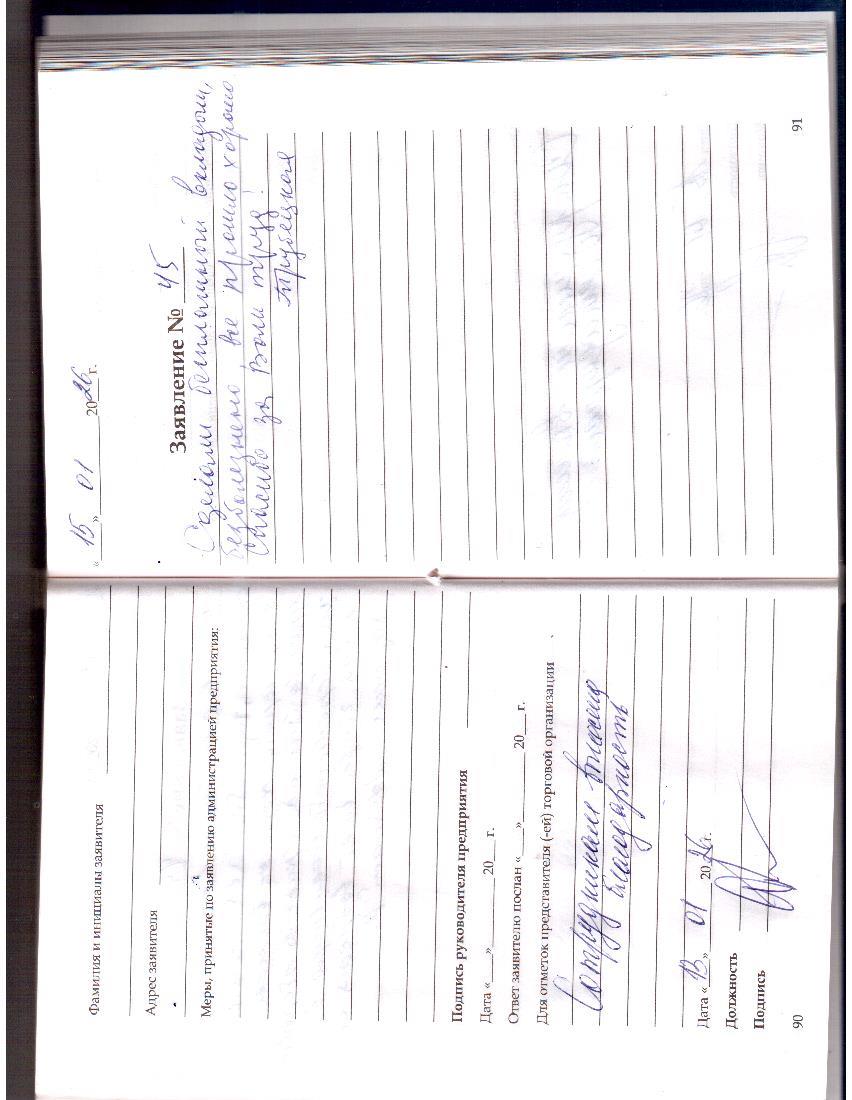 Фамилия и инициалы заявителя
Адрес заявителя
Меры, принятые по заявлению администрацией предприятия:
Подпись руководителя предприятия
Дата «___»________20___ г.
Ответ заявителю послан «___»________20___ г.
Для отметок представителя (-ей) торговой организации
Сотрудникам вынести
благодарность
Дата «13» 01 2026г.
Должность
Подпись
90
«15» 01 2026 г.
Заявление № 45
Сделали бесплатный вкладыш,
безболезненно, все прошло хорошо
Спасибо за Ваш труд!
Трубецкая
91